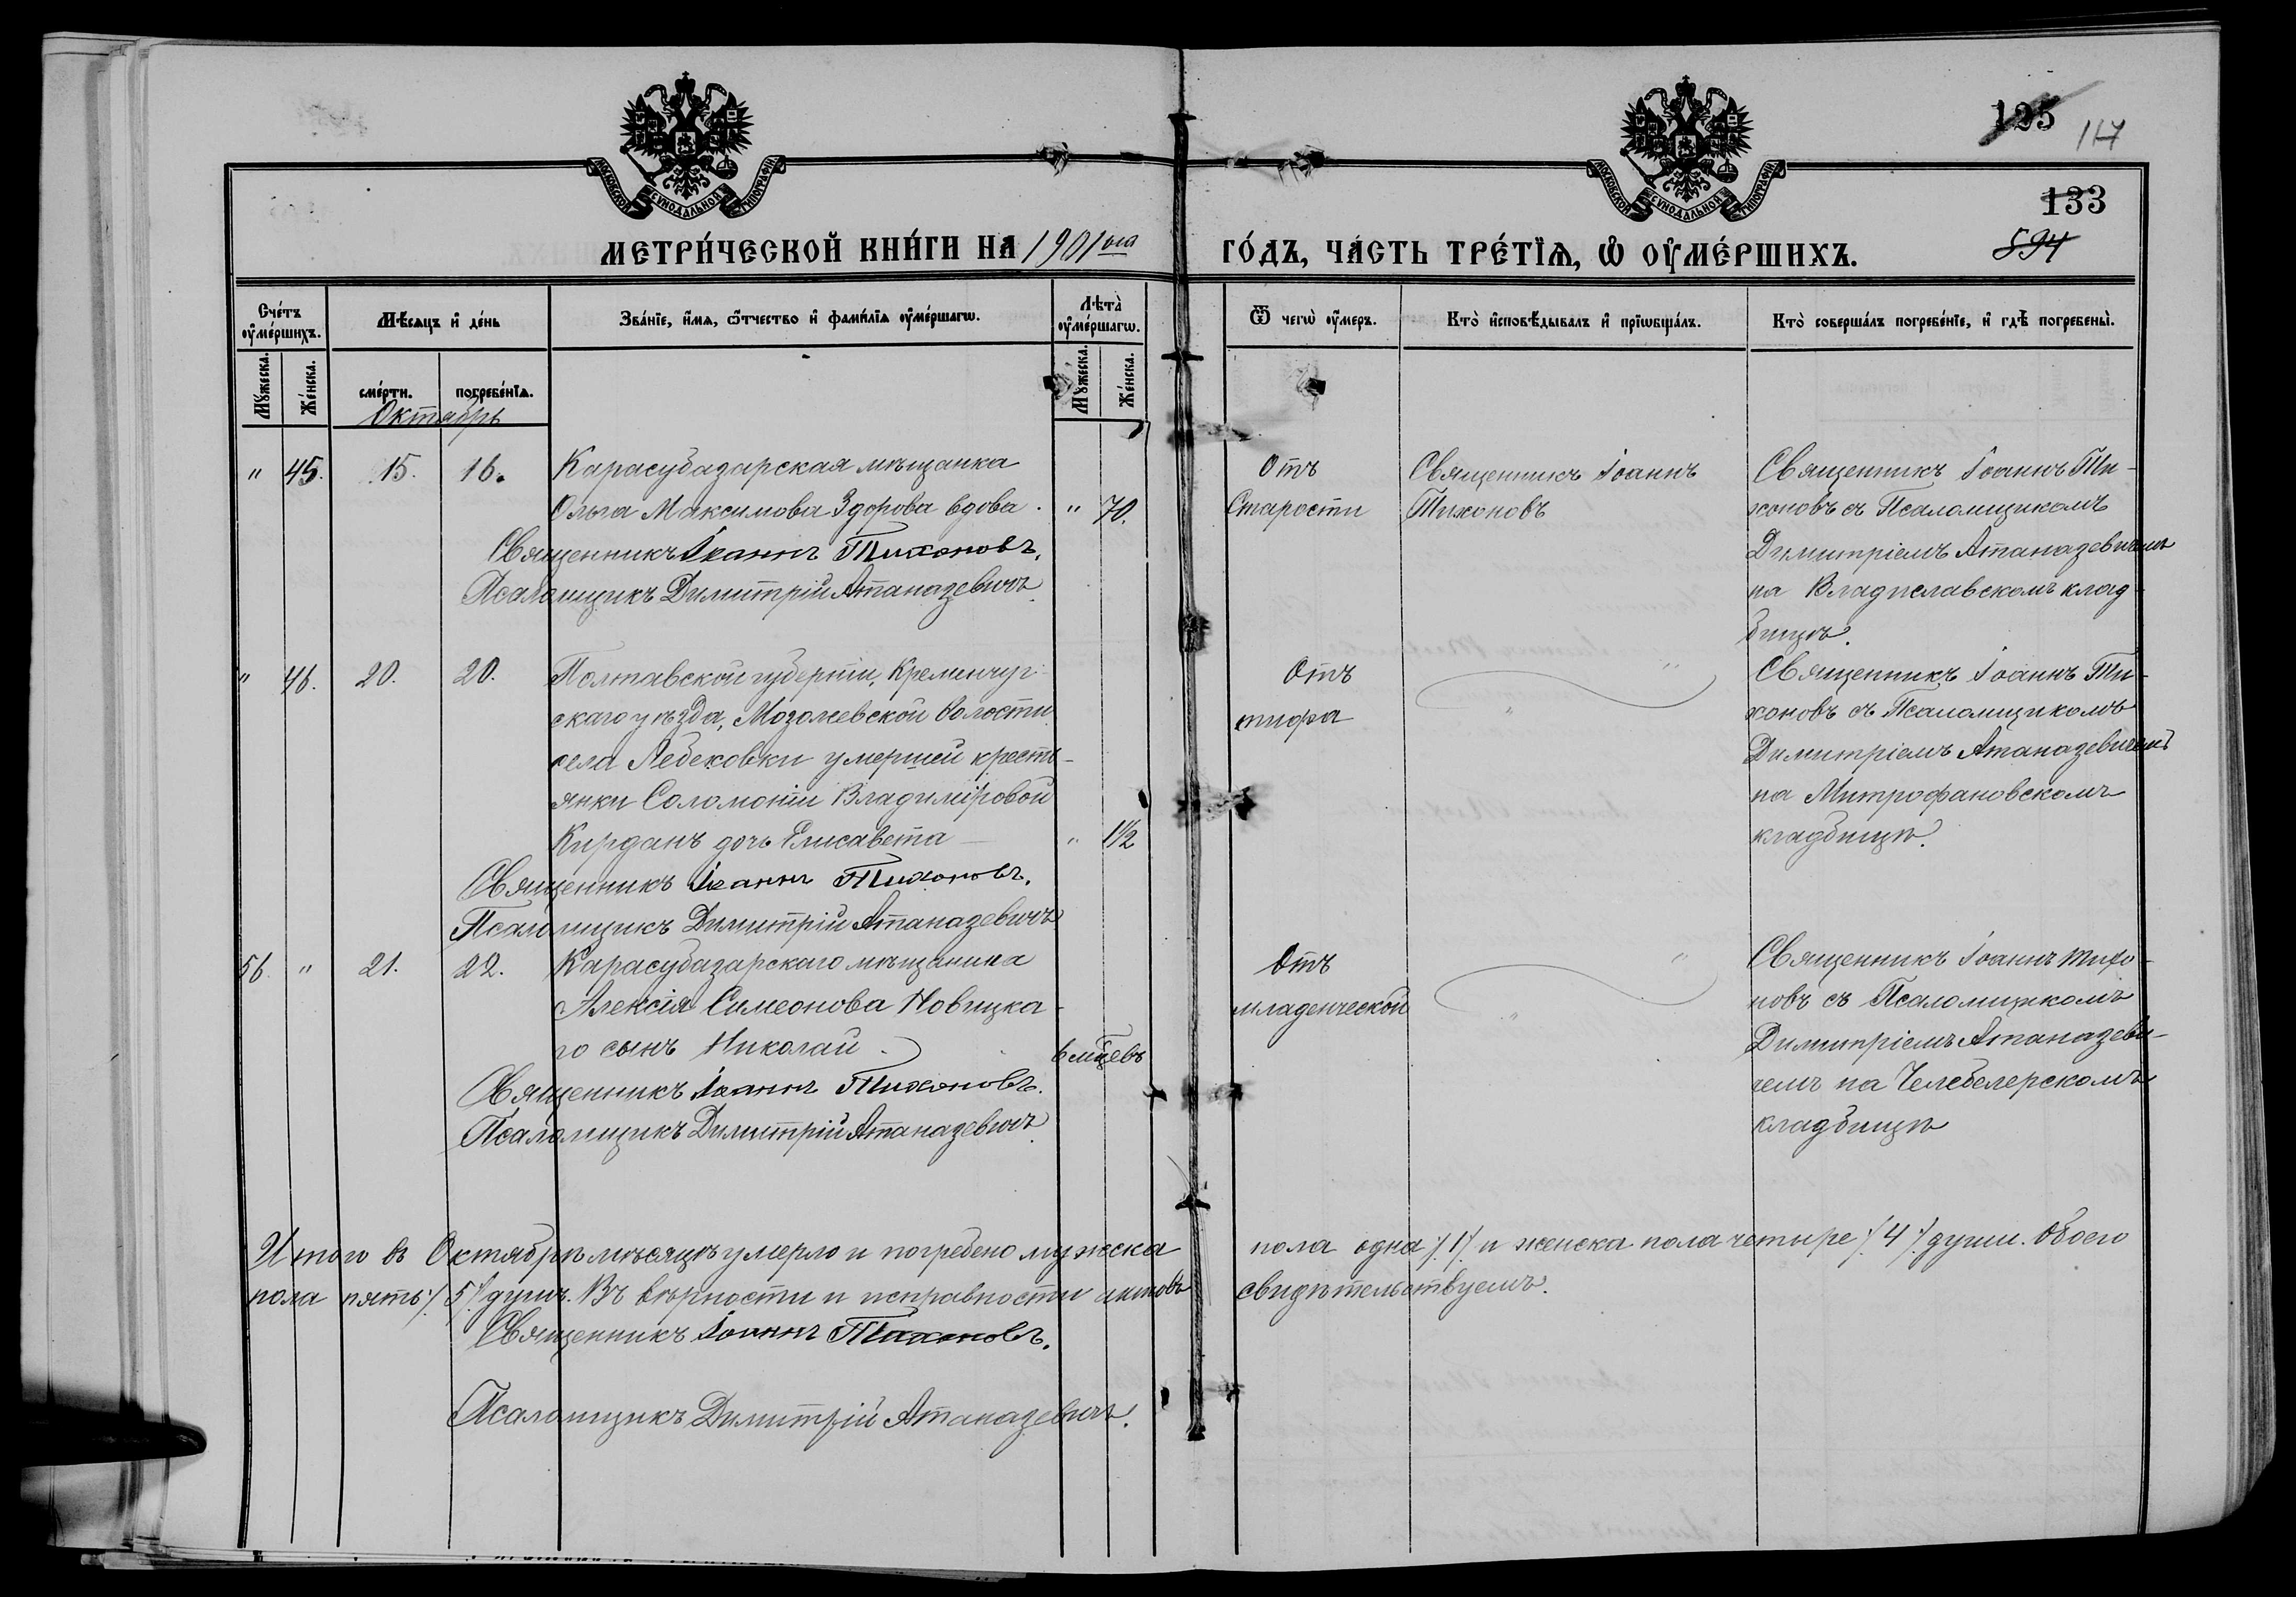 125 117
133
594
МОСКОВСКОЙ СУНОДАЛЬНОЙ ТИПОГРАФІИ
МОСКОВСКОЙ СУНОДАЛЬНОЙ ТИПОГРАФІИ
МЕТРИ́ЧЕСКОЙ КНИ́ГИ НА 1901ый ГО́ДЪ, ЧА́СТЬ ТРЕ́ТІѦ, Ѡ ОУМЕ́РШИХЪ.
Сче́тъ оуме́ршихъ.
Мѣ́сяцъ и де́нь
Зва́нїе, и́мя, ѻ́тчество и фами́лїя оуме́ршагѡ.
Лѣта̀ оуме́ршагѡ.
Ѿ чегѡ̀ оу́меръ.
Кто̀ исповѣ́дывалъ и прїѡбща́лъ.
Кто̀ соверша́лъ погребе́нїе, и гдѣ̀ погребены̀.
Му́жеска.
Же́нска.
сме́рти.
погребе́нїя.
Му́жеска.
Же́нска.
Октябрь
" 45. 15. 16. Карасубазарская мѣщанка
Ольга Максимова Здорова вдова. " 70.
Священникъ Іоаннъ Тихоновъ.
Псаломщикъ Димитрій Атаназевичъ.
Отъ
Старости
Священникъ Іоаннъ
Тихоновъ
Священникъ Іоаннъ Ти-
хоновъ съ Псаломщикомъ
Димитріемъ Атаназевичемъ
на Владиславскомъ клад-
бищѣ.
" 46. 20. 20. Полтавской губерніи, Кременчуг-
скаго уѣзда, Мозолеевской волости
села Лебеховки умершей кресть-
янки Соломоніи Владиміровой
Кирданъ дочь Елисавета — " 1½
Священникъ Іоаннъ Тихоновъ.
Псаломщикъ Димитрій Атаназевичъ
Отъ
тифа
"
"
Священникъ Іоаннъ Ти-
хоновъ съ Псаломщикомъ
Димитріемъ Атаназевичемъ
на Митрофановскомъ
кладбищѣ.
56. " 21. 22. Карасубазарскаго мѣщанина
Алексія Симеонова Новицка-
го сынъ Николай. 6 мѣцевъ
Священникъ Іоаннъ Тихоновъ.
Псаломщикъ Димитрій Атаназевичъ.
Отъ
младенческой
"
"
Священникъ Іоаннъ Тихо-
новъ съ Псаломщикомъ
Димитріемъ Атаназеви-
чемъ на Челебелерскомъ
кладбищѣ
Итого въ Октябрѣ мѣсяцѣ умерло и погребено мужеска пола одна /1/ и женска пола четыре /4/ души. Обоего
пола пять /5/ душъ. Въ вѣрности и исправности актовъ свидѣтельствуемъ.
Священникъ Іоаннъ Тихоновъ.
Псаломщикъ Димитрій Атаназевичъ.